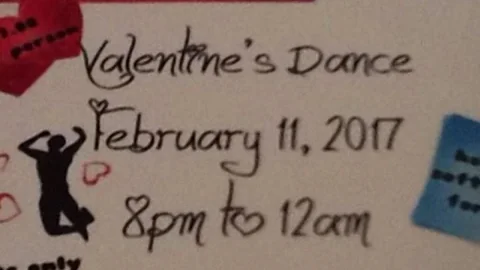 person
Valentine's Dance
February 11, 2017
8pm to 12am
only